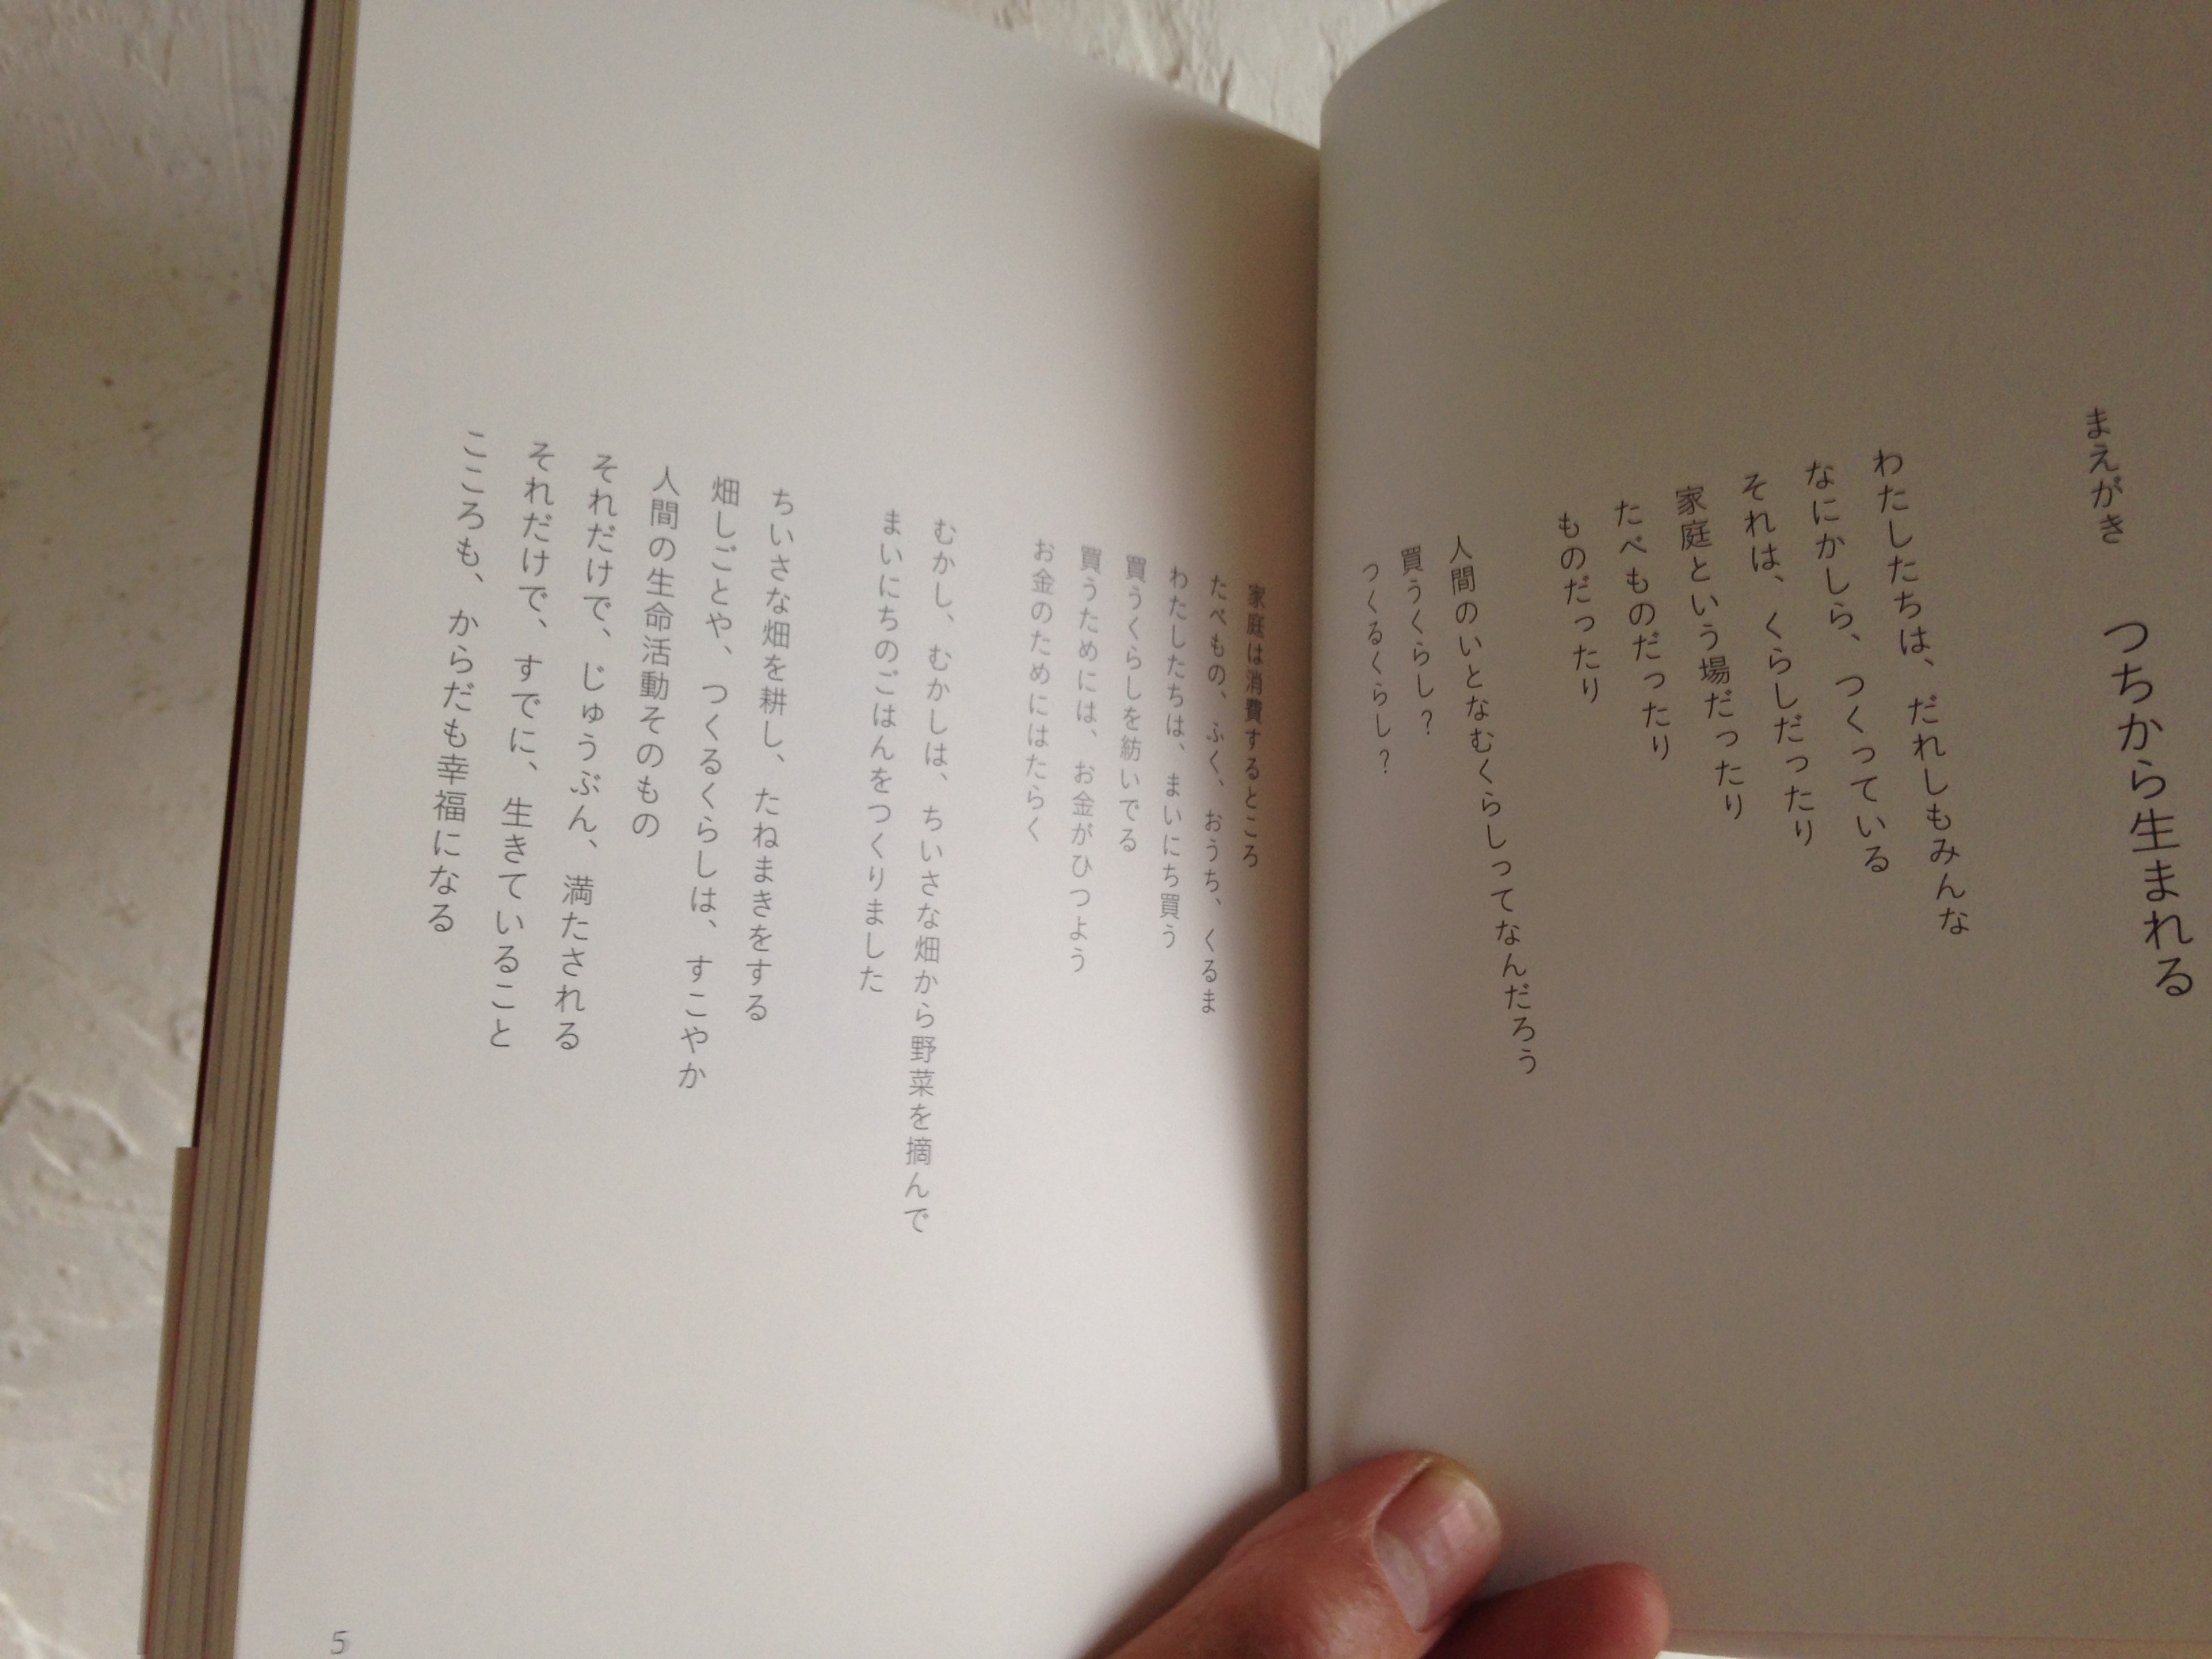 まえがき　つちから生まれる
わたしたちは、だれしもみんな
なにかしら、つくっている
それは、くらしだったり
家庭という場だったり
たべものだったり
ものだったり
人間のいとなむくらしってなんだろう
買うくらし？
つくるくらし？
家庭は消費するところ
たべもの、ふく、おうち、くるま
わたしたちは、まいにち買う
買うくらしを紡いでる
買うためには、お金がひつよう
お金のためにはたらく
むかし、むかしは、ちいさな畑から野菜を摘んで
まいにちのごはんをつくりました
ちいさな畑を耕し、たねまきをする
畑しごとや、つくるくらしは、すこやか
人間の生命活動そのもの
それだけで、じゅうぶん、満たされる
それだけで、すでに、生きていること
こころも、からだも幸福になる
5